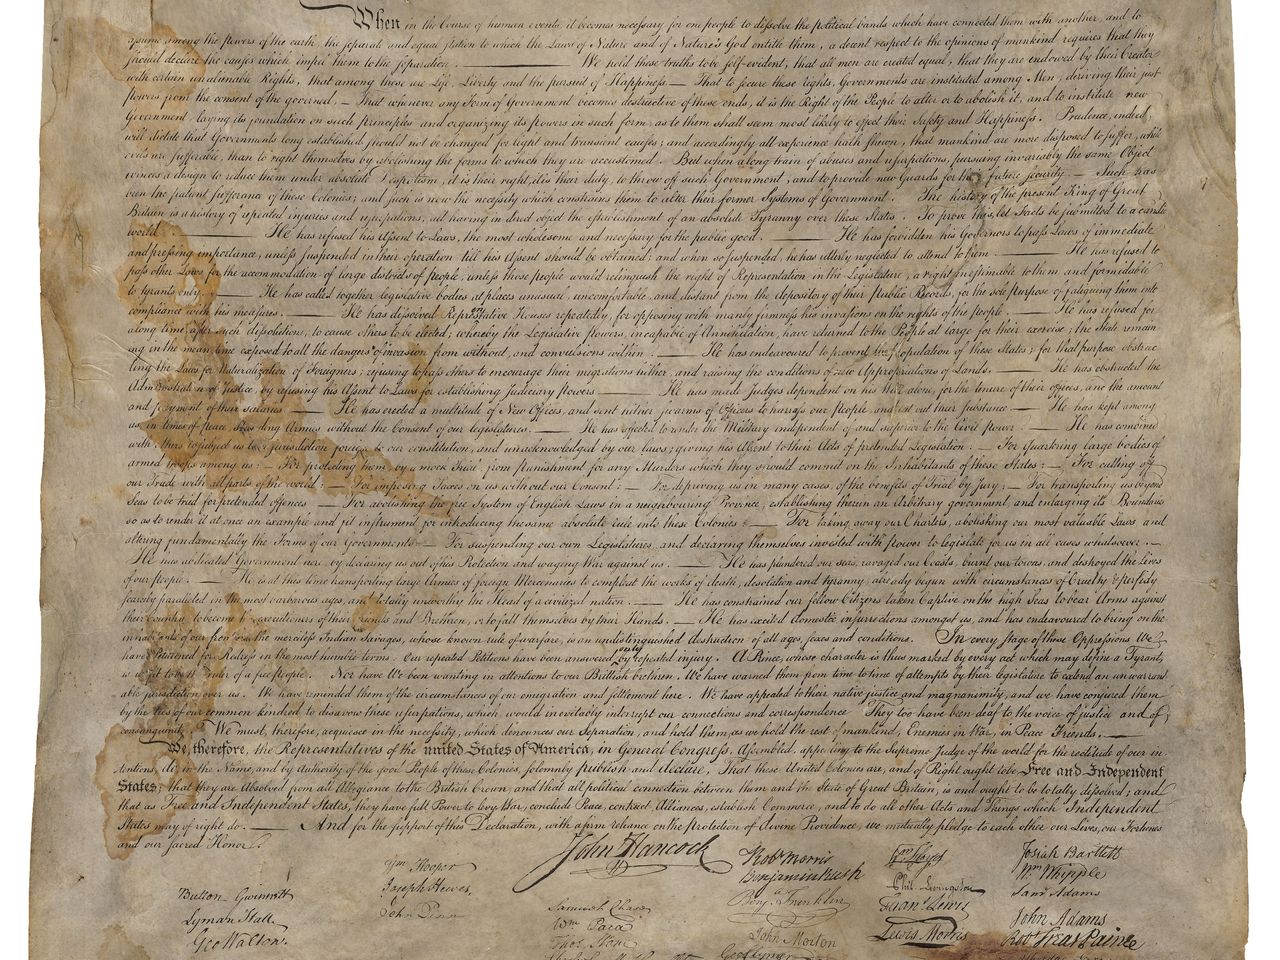 When in the Course of human events, it becomes necessary for one people to dissolve the political bands which have connected them with another, and to
assume among the powers of the earth, the separate and equal station to which the Laws of Nature and of Nature's God entitle them, a decent respect to the opinions of mankind requires that they
should declare the causes which impel them to the separation. — We hold these truths to be self-evident, that all men are created equal, that they are endowed by their Creator
with certain unalienable Rights, that among these are Life, Liberty and the pursuit of Happiness. — That to secure these rights, Governments are instituted among Men, deriving their just
powers from the consent of the governed, — That whenever any Form of Government becomes destructive of these ends, it is the Right of the People to alter or to abolish it, and to institute new
Government, laying its foundation on such principles and organizing its powers in such form, as to them shall seem most likely to effect their Safety and Happiness. Prudence, indeed,
will dictate that Governments long established should not be changed for light and transient causes; and accordingly all experience hath shewn, that mankind are more disposed to suffer, while
evils are sufferable, than to right themselves by abolishing the forms to which they are accustomed. But when a long train of abuses and usurpations, pursuing invariably the same Object
evinces a design to reduce them under absolute Despotism, it is their right, it is their duty, to throw off such Government, and to provide new Guards for their future security. — Such has
been the patient sufferance of these Colonies; and such is now the necessity which constrains them to alter their former Systems of Government. The history of the present King of Great
Britain is a history of repeated injuries and usurpations, all having in direct object the establishment of an absolute Tyranny over these States. To prove this, let Facts be submitted to a candid
world. — He has refused his Assent to Laws, the most wholesome and necessary for the public good. — He has forbidden his Governors to pass Laws of immediate
and pressing importance, unless suspended in their operation till his Assent should be obtained; and when so suspended, he has utterly neglected to attend to them. — He has refused to
pass other Laws for the accommodation of large districts of people, unless those people would relinquish the right of Representation in the Legislature, a right inestimable to them and formidable
to tyrants only. — He has called together legislative bodies at places unusual, uncomfortable, and distant from the depository of their Public Records, for the sole purpose of fatiguing them into
compliance with his measures. — He has dissolved Representative Houses repeatedly, for opposing with manly firmness his invasions on the rights of the people. — He has refused for
a long time, after such dissolutions, to cause others to be elected; whereby the Legislative powers, incapable of Annihilation, have returned to the People at large for their exercise; the State remain-
ing in the mean time exposed to all the dangers of invasion from without, and convulsions within. — He has endeavoured to prevent the population of these States; for that purpose obstruc-
ting the Laws for Naturalization of Foreigners; refusing to pass others to encourage their migrations hither, and raising the conditions of new Appropriations of Lands. — He has obstructed the
Administration of Justice, by refusing his Assent to Laws for establishing Judiciary powers. — He has made Judges dependent on his Will alone, for the tenure of their offices, and the amount
and payment of their salaries. — He has erected a multitude of New Offices, and sent hither swarms of Officers to harrass our people, and eat out their substance. — He has kept among
us, in times of peace, Standing Armies without the Consent of our legislatures. — He has affected to render the Military independent of and superior to the Civil power. — He has combined
with others to subject us to a jurisdiction foreign to our constitution, and unacknowledged by our laws; giving his Assent to their Acts of pretended Legislation: — For Quartering large bodies of
armed troops among us: — For protecting them, by a mock Trial, from punishment for any Murders which they should commit on the Inhabitants of these States: — For cutting off
our Trade with all parts of the world: — For imposing Taxes on us without our Consent: — For depriving us in many cases, of the benefits of Trial by Jury: — For transporting us beyond
Seas to be tried for pretended offences — For abolishing the free System of English Laws in a neighbouring Province, establishing therein an Arbitrary government, and enlarging its Boundaries
so as to render it at once an example and fit instrument for introducing the same absolute rule into these Colonies: — For taking away our Charters, abolishing our most valuable Laws, and
altering fundamentally the Forms of our Governments: — For suspending our own Legislatures, and declaring themselves invested with power to legislate for us in all cases whatsoever. —
He has abdicated Government here, by declaring us out of his Protection and waging War against us. — He has plundered our seas, ravaged our Coasts, burnt our towns, and destroyed the lives
of our people. — He is at this time transporting large Armies of foreign Mercenaries to compleat the works of death, desolation and tyranny, already begun with circumstances of Cruelty & perfidy
scarcely paralleled in the most barbarous ages, and totally unworthy the Head of a civilized nation. — He has constrained our fellow Citizens taken Captive on the high Seas to bear Arms against
their Country, to become the executioners of their friends and Brethren, or to fall themselves by their Hands. — He has excited domestic insurrections amongst us, and has endeavoured to bring on the
inhabitants of our frontiers, the merciless Indian Savages, whose known rule of warfare, is an undistinguished destruction of all ages, sexes and conditions. In every stage of these Oppressions We
have Petitioned for Redress in the most humble terms: Our repeated Petitions have been answered only by repeated injury. A Prince, whose character is thus marked by every act which may define a Tyrant,
is unfit to be the ruler of a free people. Nor have We been wanting in attentions to our Brittish brethren. We have warned them from time to time of attempts by their legislature to extend an unwarrant-
able jurisdiction over us. We have reminded them of the circumstances of our emigration and settlement here. We have appealed to their native justice and magnanimity, and we have conjured them
by the ties of our common kindred to disavow these usurpations, which, would inevitably interrupt our connections and correspondence. They too have been deaf to the voice of justice and of
consanguinity. We must, therefore, acquiesce in the necessity, which denounces our Separation, and hold them, as we hold the rest of mankind, Enemies in War, in Peace Friends. —
We, therefore, the Representatives of the united States of America, in General Congress, Assembled, appealing to the Supreme Judge of the world for the rectitude of our in-
tentions, do, in the Name, and by Authority of the good People of these Colonies, solemnly publish and declare, That these United Colonies are, and of Right ought to be Free and Independent
States; that they are Absolved from all Allegiance to the British Crown, and that all political connection between them and the State of Great Britain, is and ought to be totally dissolved; and
that as Free and Independent States, they have full Power to levy War, conclude Peace, contract Alliances, establish Commerce, and to do all other Acts and Things which Independent
States may of right do. — And for the support of this Declaration, with a firm reliance on the protection of divine Providence, we mutually pledge to each other our Lives, our Fortunes
and our sacred Honor.
Button Gwinnett
Lyman Hall
Geo Walton.
Wm Hooper
Joseph Hewes,
John Penn
John Hancock
Samuel Chase
Wm Paca
Thos Stone
Robt Morris
Benjamin Rush
Benja Franklin
John Morton
Geo Clymer
Wm Floyd
Phil. Livingston
Frans Lewis
Lewis Morris
Josiah Bartlett
Wm Whipple
Saml Adams
John Adams
Robt Treat Paine